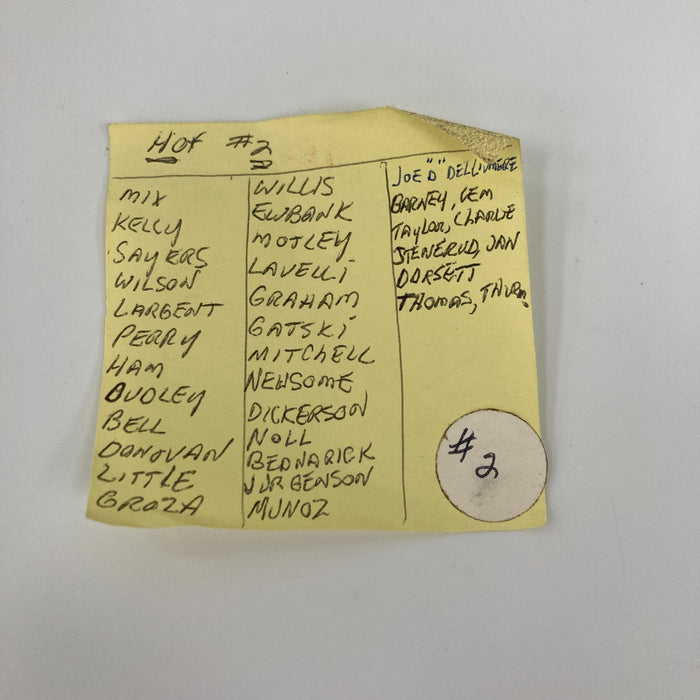 HOF #2
MIX
KELLY
SAYERS
WILSON
LARGENT
PERRY
HAM
DUDLEY
BELL
DONOVAN
LITTLE
GROZA
WILLIS
EWBANK
MOTLEY
LAVELLI
GRAHAM
GATSKI
MITCHELL
NEWSOME
DICKERSON
NOLL
BEDNARICK
JURGENSON
MUNOZ
JOE "D" DELLIUMERE
BARNEY, LEM
TAYLOR, CHARLIE
STENERUD, JAN
DORSETT
THOMAS, THURM.
#2